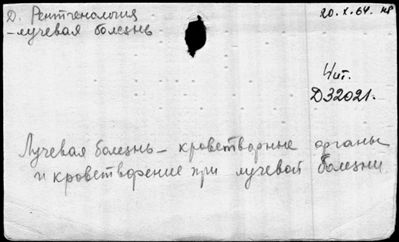 Д. Рентгенология
20.X.64. нв
- лучевая болезнь
Чит.
D32021.
Лучевая болезнь - кроветворные органы
и кроветворение при лучевой болезни